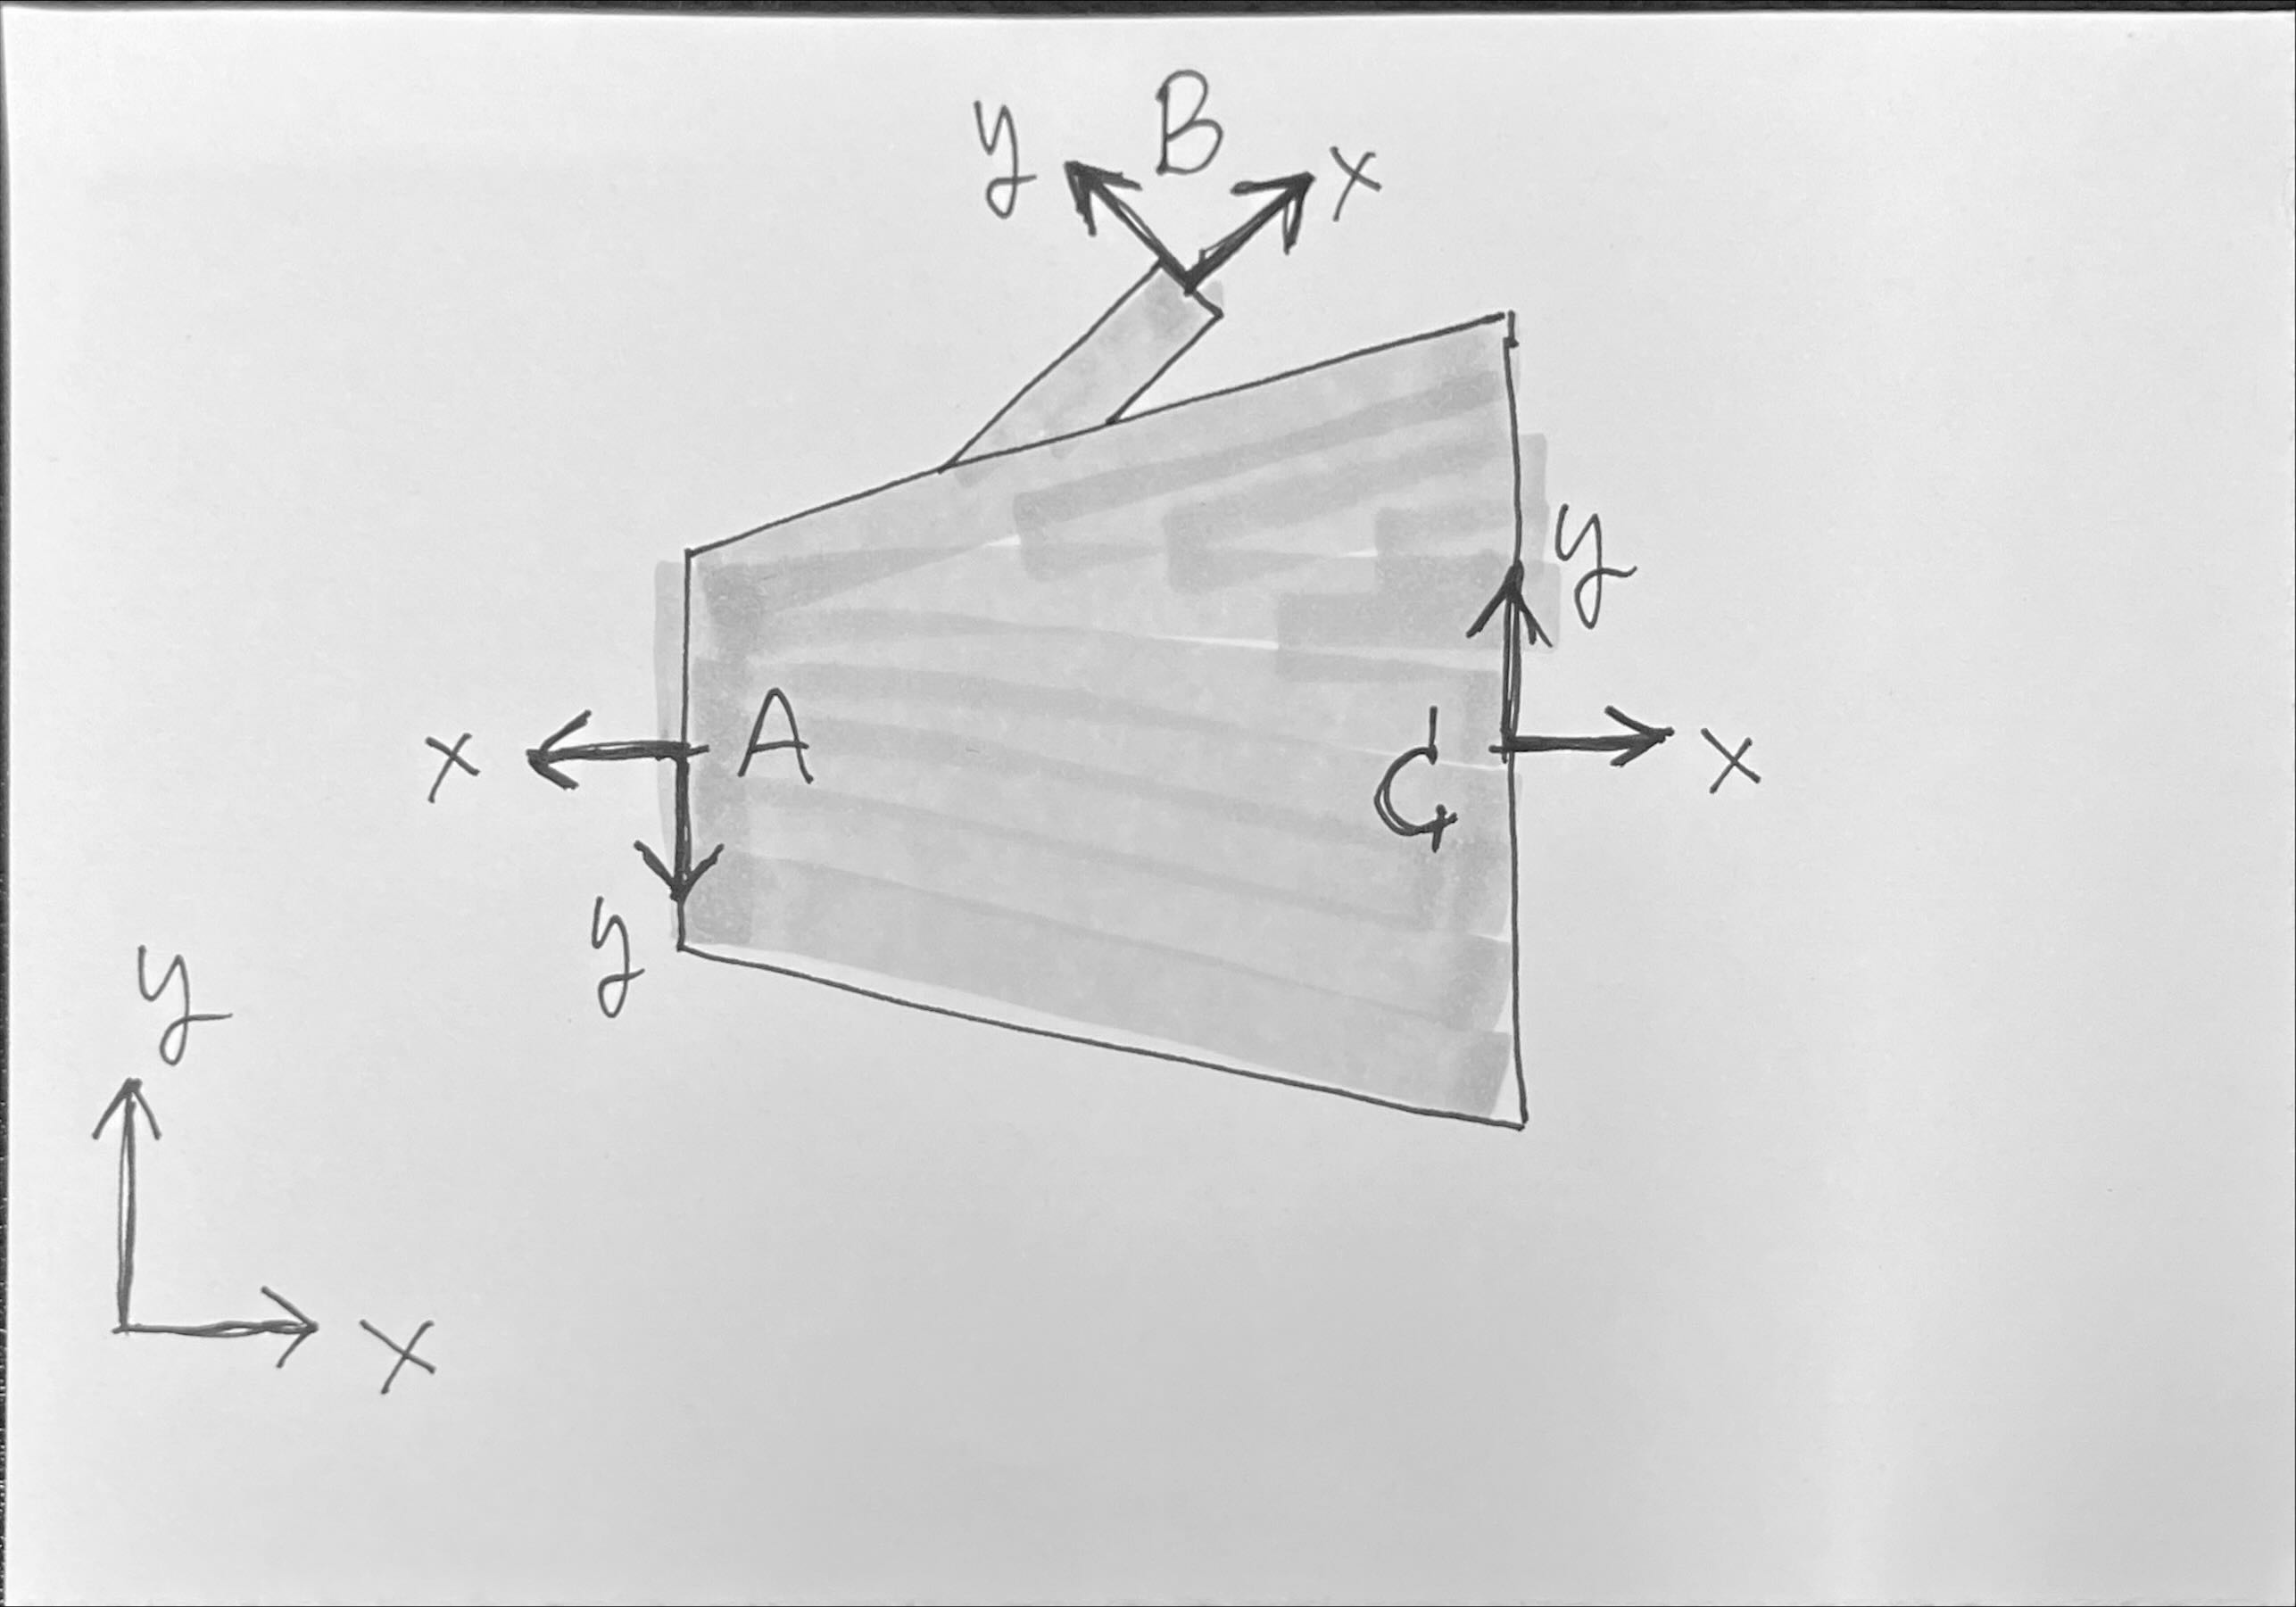 y B x
y
x A C x
y
y
x